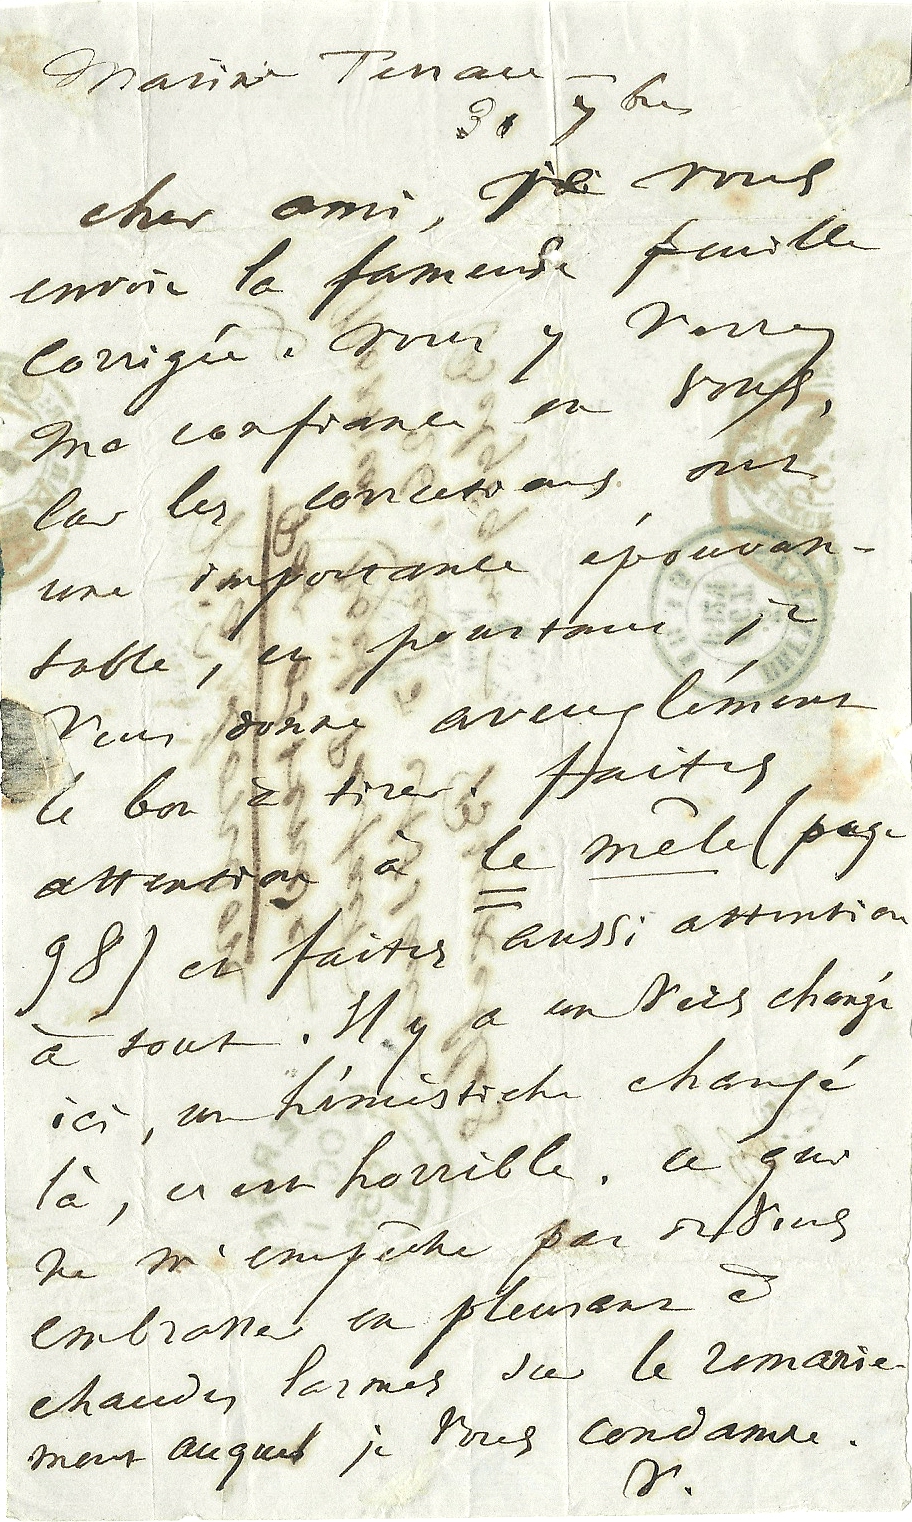 Marine Terrace —
30 7bre
cher ami, je vous
envoie la fameuse feuille
corrigée. vous y verrez
ma confiance en vous,
car les corrections ont
une importance épouvan-
table, et pourtant je
vous donne aveuglément
le bon à tirer. faites
attention à le mêle (page
98) et faites aussi attention
à tout. Il y a un vers changé
ici, un hémistiche changé
là, c'est horrible. ce qui
ne m'empêche pas de vous
embrasser en pleurant à
chaudes larmes sur le remanie-
ment auquel je vous condamne.
V.